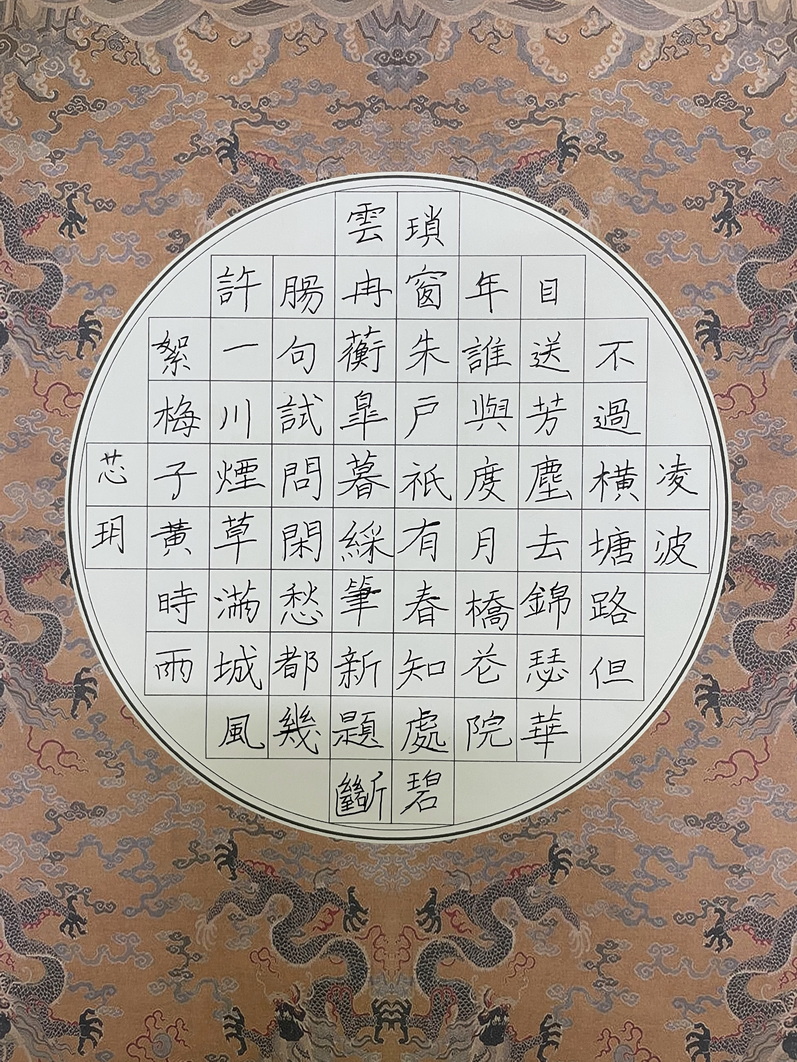 凌波
不過橫塘路但
目送芳塵去錦瑟華
年誰與度月橋花院
瑣窗朱戶祇有春知處碧
雲冉蘅皐暮綵筆新題斷
腸句試問閑愁都幾
許一川煙草滿城風
絮梅子黃時雨
芯玥